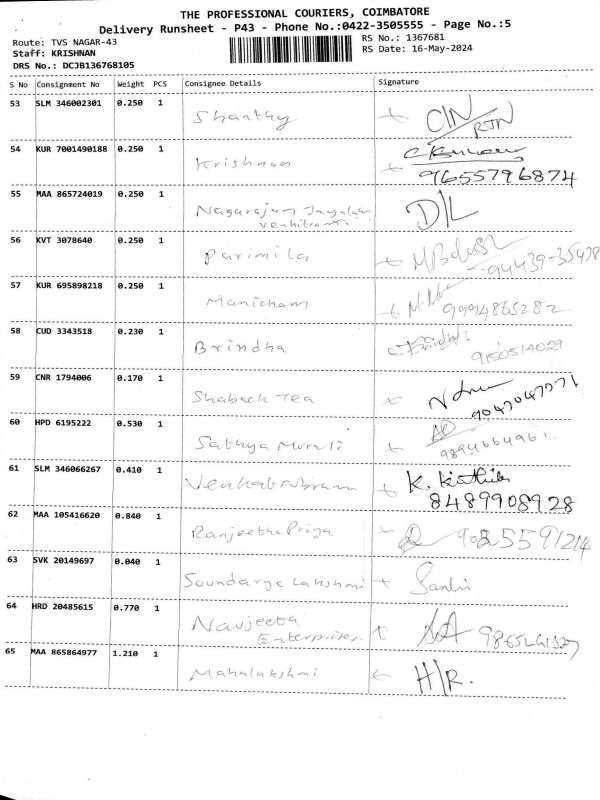 THE PROFESSIONAL COURIERS, COIMBATORE
Delivery Runsheet - P43 - Phone No.:0422-3505555 - Page No.:5
Route: TVS NAGAR-43 RS No.: 1367681
Staff: KRISHNAN RS Date: 16-May-2024
DRS No.: DCJB136768105
S No Consignment No Weight PCS Consignee Details Signature
53 SLM 346002301 0.250 1 Shanthy C/N RTN
54 KUR 7001490188 0.250 1 Krishnan
9655796874
55 MAA 865724019 0.250 1 Nagarajan D/L
56 KVT 3078640 0.250 1 Parimila
94439-35478
57 KUR 695898218 0.250 1 Manicham
9994865282
58 CUD 3343518 0.230 1 Brindha
9150514029
59 CNR 1794006 0.170 1 Shaback Tea
9047047771
60 HPD 6195222 0.530 1 Sathya Murali
9894664961
61 SLM 346066267 0.410 1 Venkatsubram K.
8489908928
62 MAA 105416620 0.840 1 Ranjeetha Priya
63 SVK 20149697 0.040 1 Soundarya Lakshmi
64 HRD 20485615 0.770 1 Navjeeta
Enterprises
65 MAA 865864977 1.210 1 Mahalakshmi H/R.